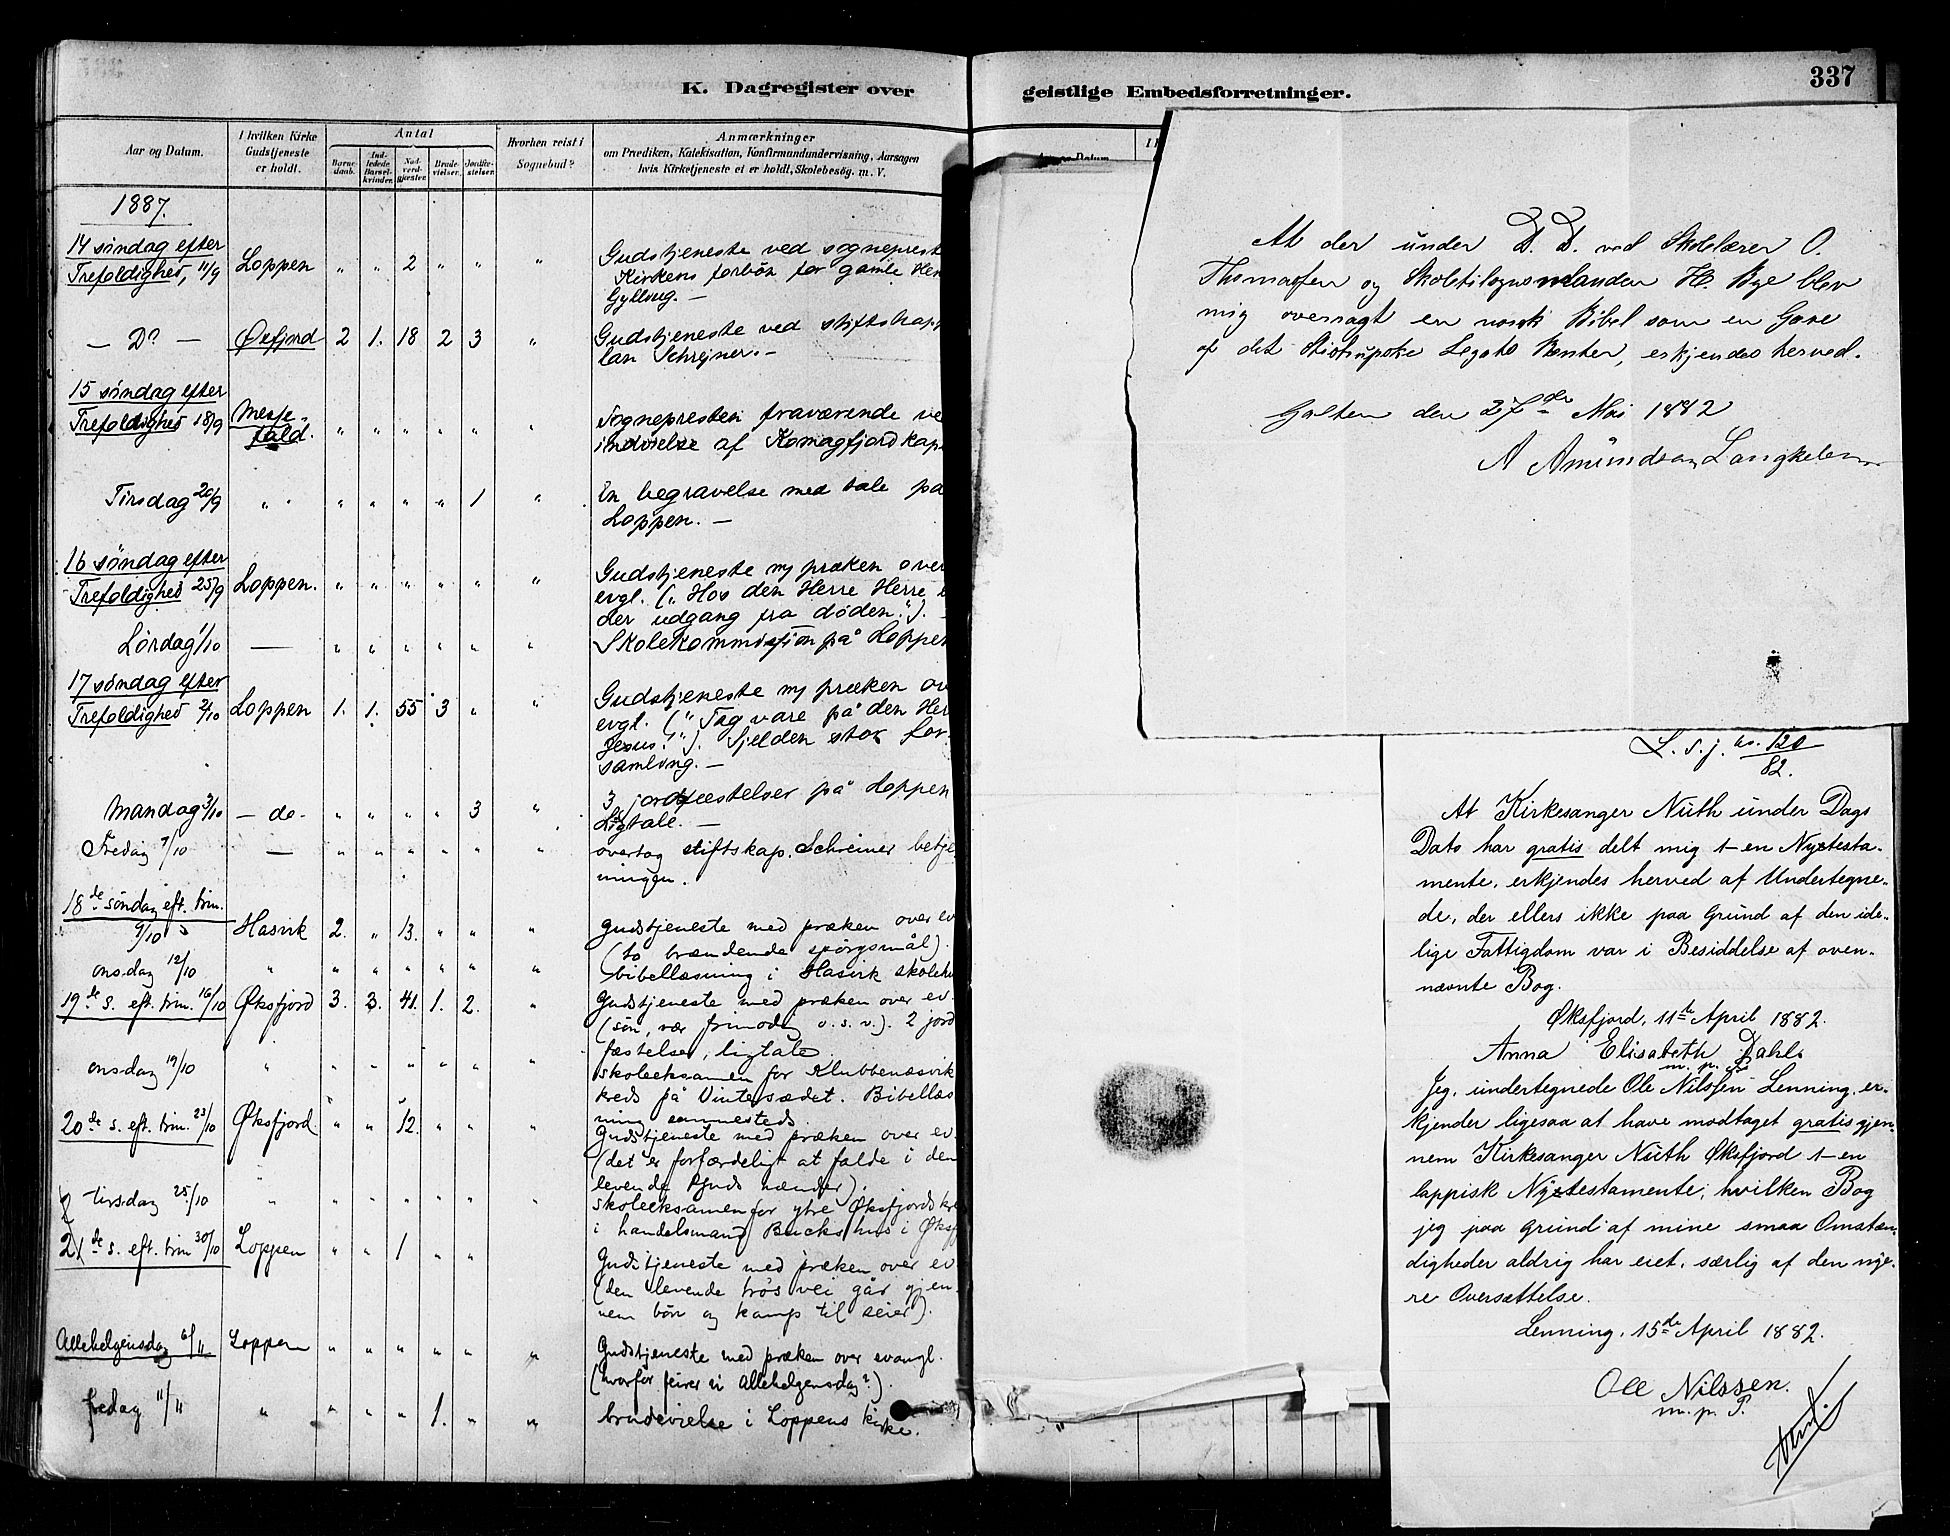 K. Dagregister over
geistlige Embedsforretninger.
337
Aar og Datum.
I hvilken Kirke Gudstjeneste er holdt.
Antal
Barnedaab.
Indledede Barselkvinder.
Nadverdgjester.
Brudevielser.
Jordfæstelser.
Hvorhen reist i Sognebud?
Anmærkninger
om Prædiken, Katekisation, Konfirmandundervisning, Aarsagen
hvis Kirketjeneste ei er holdt, Skolebesøg. m. V.
1887.
14 søndag efter
Trefoldighed, 11/9 Loppen " " 2 " " "
Gudstjeneste ved sogneprest
Kirkens forbön for gamle
Gylling. —
— Do — Øxfjord 2 1. 18 2 3 "
Gudstjeneste ved stiftskap
lan Schrejner. —
15 søndag efter
Trefoldighed 18/9 Messefald. " " " " " "
Sognepresten fraværende ve
indvielse af Komagfjord kap
Tirsdag 20/9 " " " " " " 1 "
En begravelse med tale på
Loppen. —
16 søndag efter
Trefoldighed 25/9 Loppen. " " " " " "
Gudstjeneste m/ præken over
evgl. („Hos den Herre Herre e
der udgang fra døden."). —
Lørdag 1/10 — " " " " " "
Skolekommission på Loppen
17 søndag efter
Trefoldighed 2/10 Loppen 1. 1. 55 3 " "
Gudstjeneste m/ præken ov
evgl. („Tag vare på den Her
Jesus!"). Sjelden stor for-
samling. —
Mandag 3/10 — do — " " " " 3 "
3 jordfæstelser på Loppen
Ligtale. —
Fredag 7/10 — " " " " " "
overtog stiftskap. Schreiner betje
ningen.
18de søndag eft. trin.
9/10 Hasvik 2. " 13. " " "
gudstjeneste med præken over ev
(to brændende spörgsmål).
onsdag 12/10 " " " " " " "
bibellæsning i Hasvik skoleh
19de s. eft. trin. 16/10 Øksfjord 3. 3. 41. 1. 2. "
gudstjeneste med præken over ev.
(søn, vær frimodig o. s. v.). 2 jord
fæstelser, ligtale.
onsdag 19/10 " " " " " " "
skoleeksamen for Klubbenæsvik
kreds på Vintersædet. Bibellæs
ning sammesteds.
20de s. eft. trin. 23/10 Øksfjord. " " 12. " " "
Gudstjeneste med præken over ev.
(det er forfærdeligt at falde i den
levende Guds hænder).
tirsdag 25/10 " " " " " " "
skoleeksamen for ytre Øksfjords kre
i handelsmand Bucks hus i Øksfj
21de s. eft. trin 30/10 Loppen " " 1 " "
Gudstjeneste med præken over ev
(den levende trös vei går gjen-
nem bön og kamp til seier).
Allehelgensdag 6/11 Loppen " " " " " "
Gudstjeneste med præken over evangl.
(hvorfor feirer vi Allehelgensdag?).
fredag 11/11 " " " " 1. " "
brudevielse i Loppens kirke.
At der under D. D. ved Skolelærer O.
Thomassen og Skoletilsynsmanden H. Bye blev
mig overragt en norsk Bibel som en Gave
af det Stistrupske Legats Renter, erkjendes herved.
Galten den 27de Mai 1882
A Amundsen Langkeila
L. s. j. no. 120/82.
At Kirkesanger Nuth under Dags
Dato har gratis delt mig 1-en Nytesta-
mente, erkjendes herved af Undertegne-
de, der ellers ikke paa Grund af den ide-
lige Fattigdom var i Besiddelse af oven-
nævnte Bog.
Øksfjord, 11te April 1882.
Anna Elisabeth Dahl
m. p. P.
Jeg, undertegnede Ole Nilssen Lenning, er-
kjender ligesaa at have modtaget gratis gjen-
nem Kirkesanger Nuth Øksfjord 1-en
lappisk Nytestamente, hvilken Bog
jeg paa Grund af mine smaa Omstæn-
digheder aldrig har eiet, særlig af den nye-
re Oversættelse.
Lenning, 15de April 1882.
Ole Nilssen.
m. p. P.